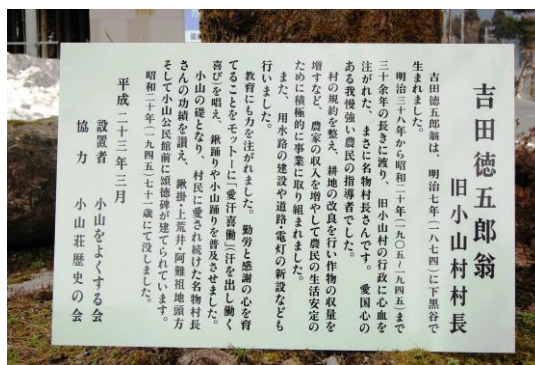 吉田徳五郎翁
旧小山村村長
吉田徳五郎翁は、明治七年(一八七四)に下黒谷で
生まれました。
明治三十八年から昭和二十年(一九〇五〜一九四五)まで
三十余年の長きに渡り、旧小山村の行政に心血を
注がれた、まさに名物村長さんです。愛国心の
ある我慢強い農民の指導者でした。
村の規約を整え、耕地の改良を行い作物の収量を
増すなど、農家の収入を増やして農民の生活安定の
ために積極的に事業に取り組まれました。
また、用水路の建設や道路・電灯の新設なども
行いました。
教育にも力を注がれました。勤労と感謝の心を育
てることをモットーに「愛汗喜働」(汗を出し働く
喜び)を唱え、鍬踊りや小山踊りを普及させました。
小山の礎となり、村民に愛され続けた名物村長
さんの功績を讃え、鍬掛・上荒井・阿難祖地頭方
そして小山公民館前に頌徳碑が建てられています。
昭和二十年(一九四五)七十一歳にて没しました。
平成二十三年三月
設置者 小山をよくする会
協力 小山荘歴史の会